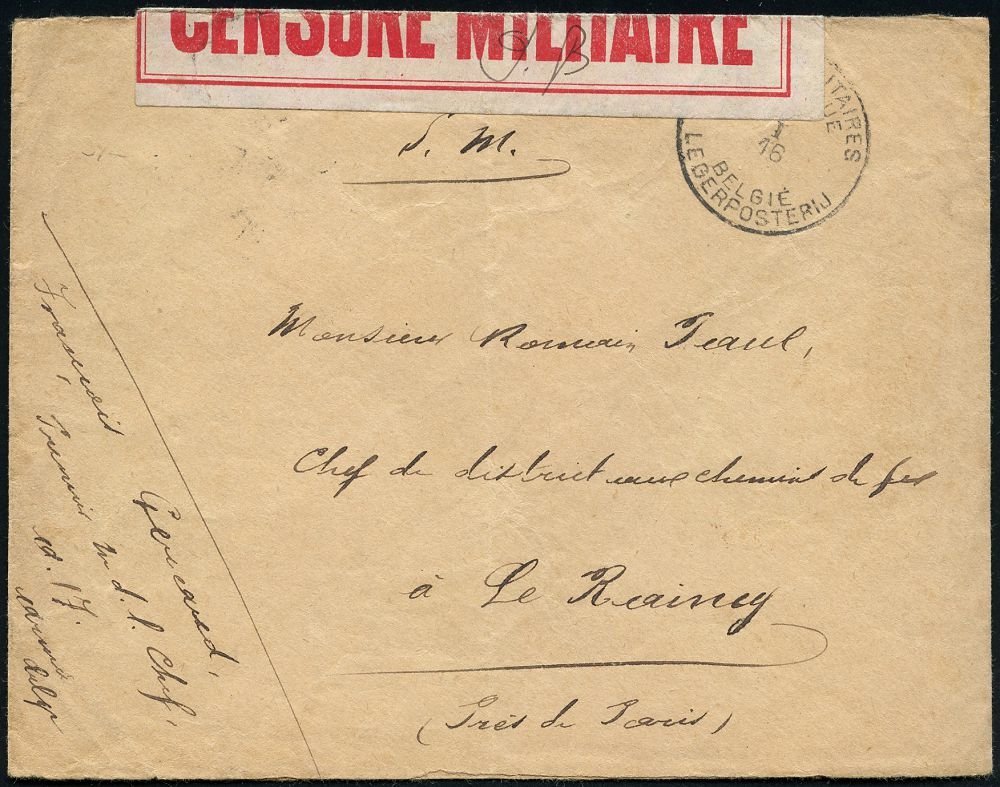 CENSURE MILITAIRE
J. B
S. M.
ITAIRES
QUE
I
16
BELGIË
LEGERPOSTERIJ
Monsieur Romain Paul,
Chef de district aux chemins de fer
à Le Raincy
(Près de Paris)
François
Premier m d. l. Chef,
cd. 17.
armée belge